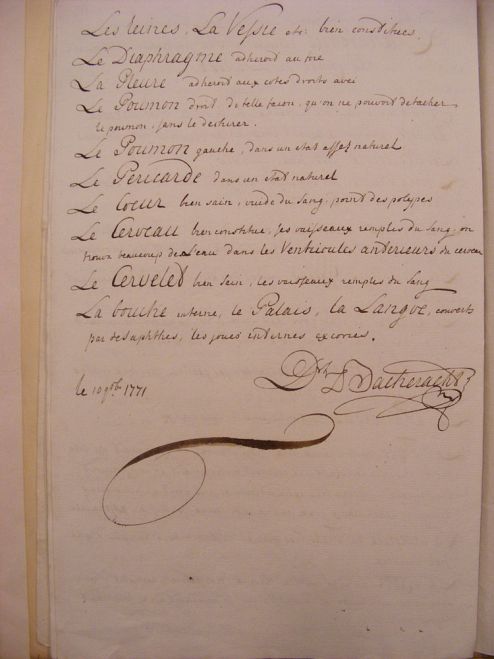 Les Reines, La Vessie etc: bien constituees.
Le Diaphragme adheroit au foie
La Pleure adheroit aux cotes droits avec
Le Poumon droit de telle facon, qu'on ne pouvoit detacher
le poumon, sans le deshirer.
Le Poumon gauche, dans un etat assez naturel
Le Pericarde dans un etat naturel
Le Coeur bien sain, vuide du sang, point des polypes
Le Cerveau bien constitue, ses vaisseaux remplis du sang, on
trouva beaucoup de l'eau dans les Ventricules anterieurs du cerveau
Le Cervelet bien sain, les vaisseaux remplis du sang
La bouche interne, le Palais, la Langue, couverts
par des aphthes, les joues internes excories.
le 10 9bre 1771